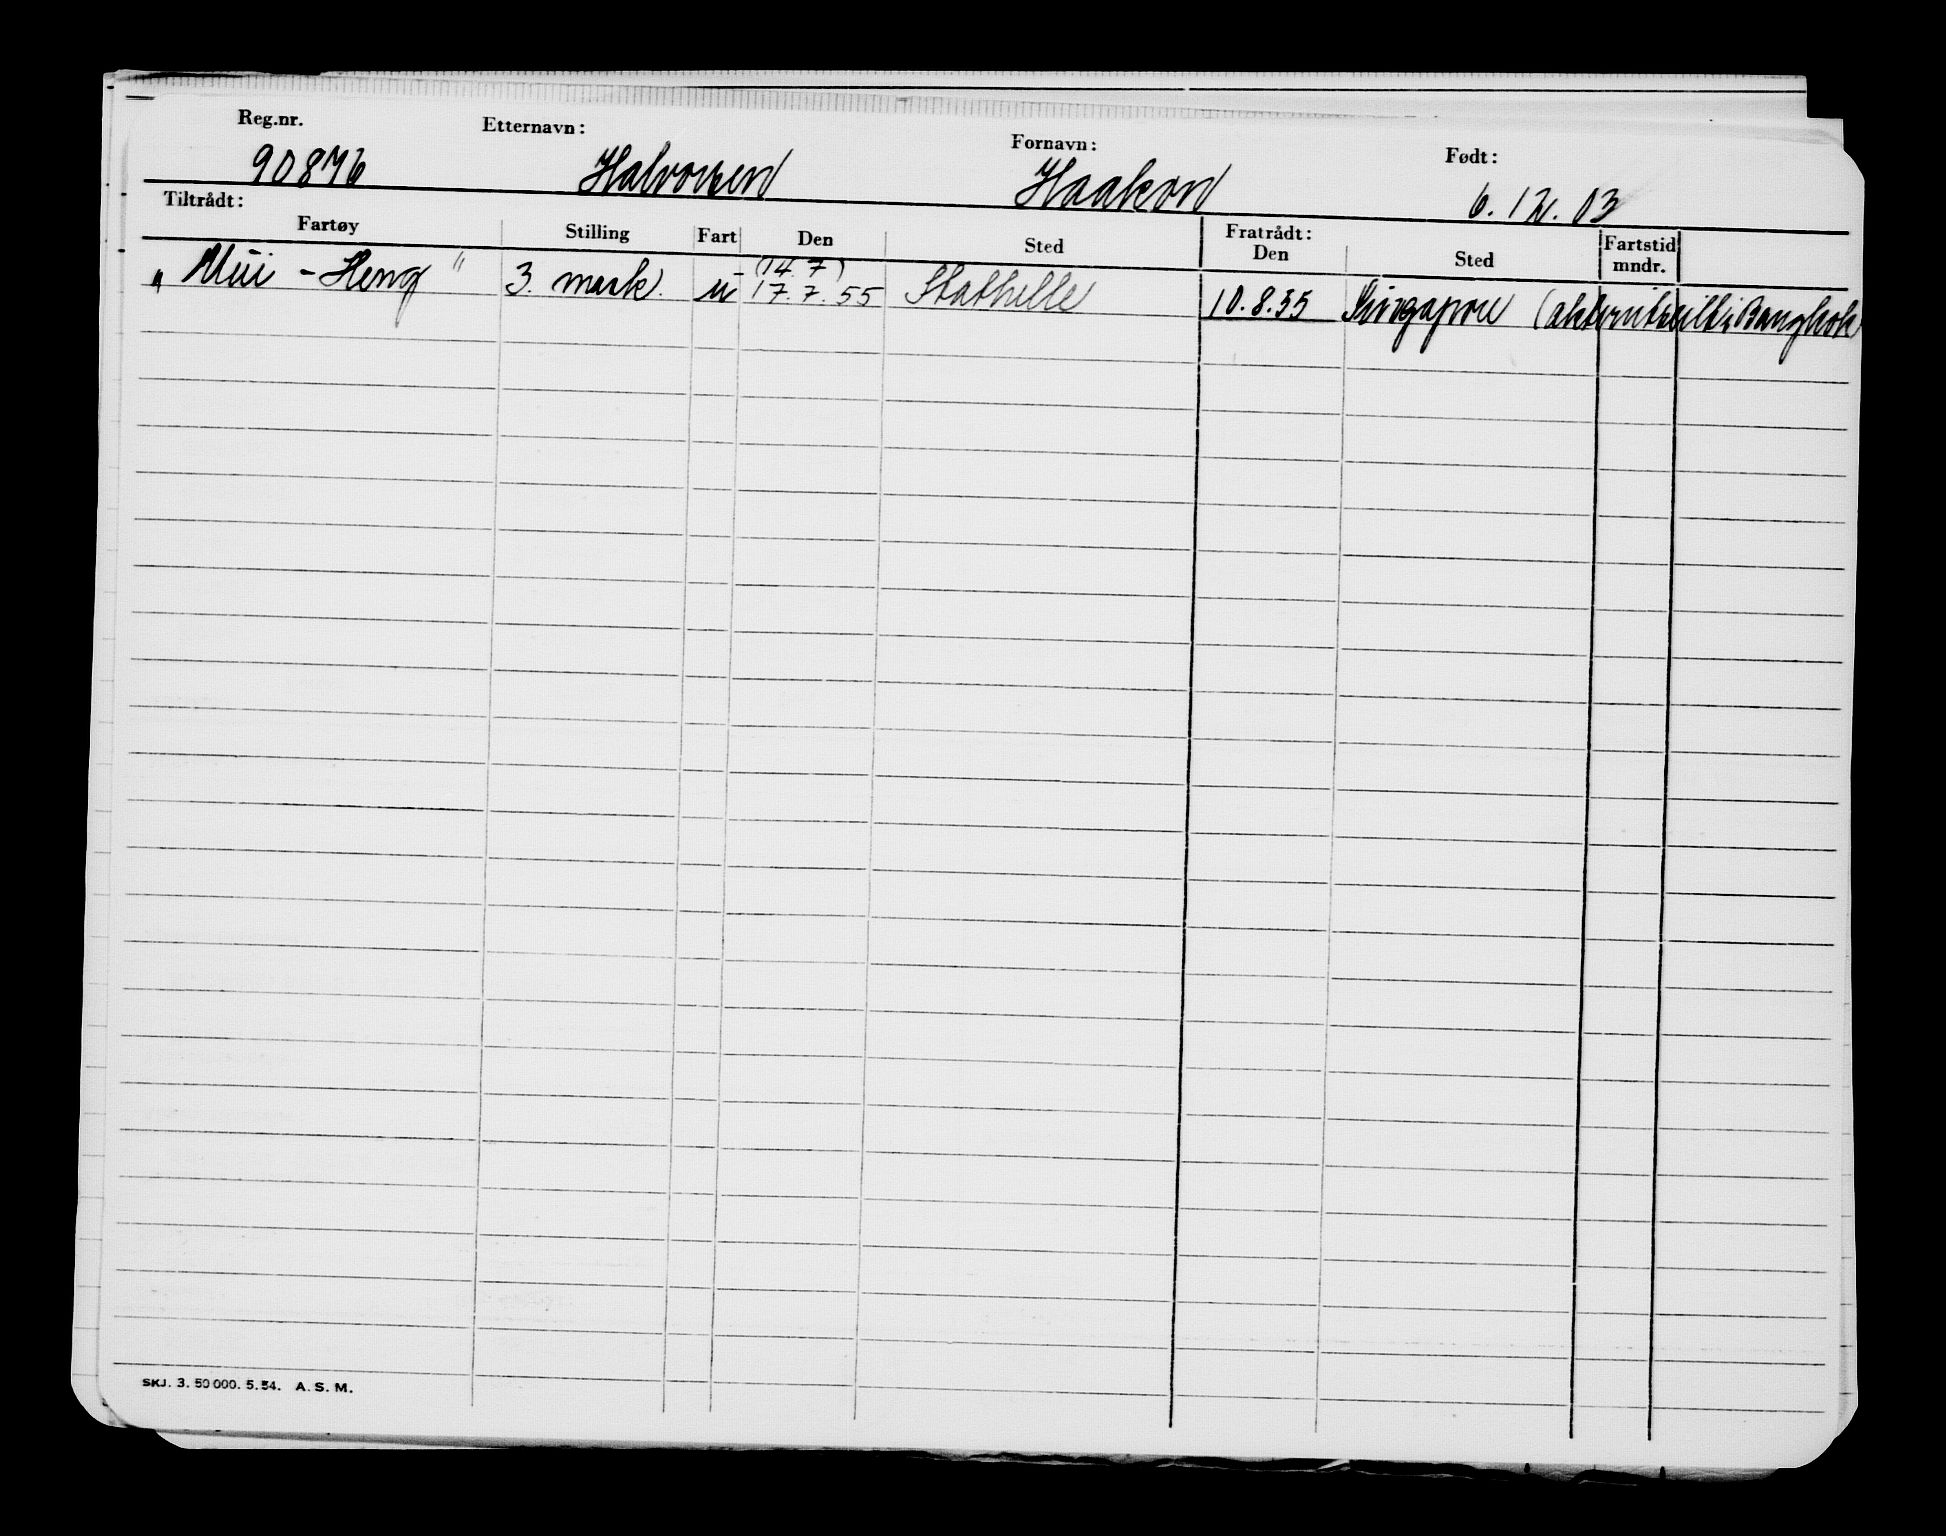 Reg.nr. Etternavn: Fornavn: Født:
90876 Halvorsen Haakon 6.12.03
Tiltrådt: Fratrådt:
Fartøy Stilling Fart Den Sted Den Sted Fartstid mndr.
(14.7)
„Mui-Heng" 3. mask. u 17.7.55 Stathelle 10.8.55 Singapore (akterutseilt i Bangkok
SKJ. 3. 50 000. 5. 54. A. S. M.